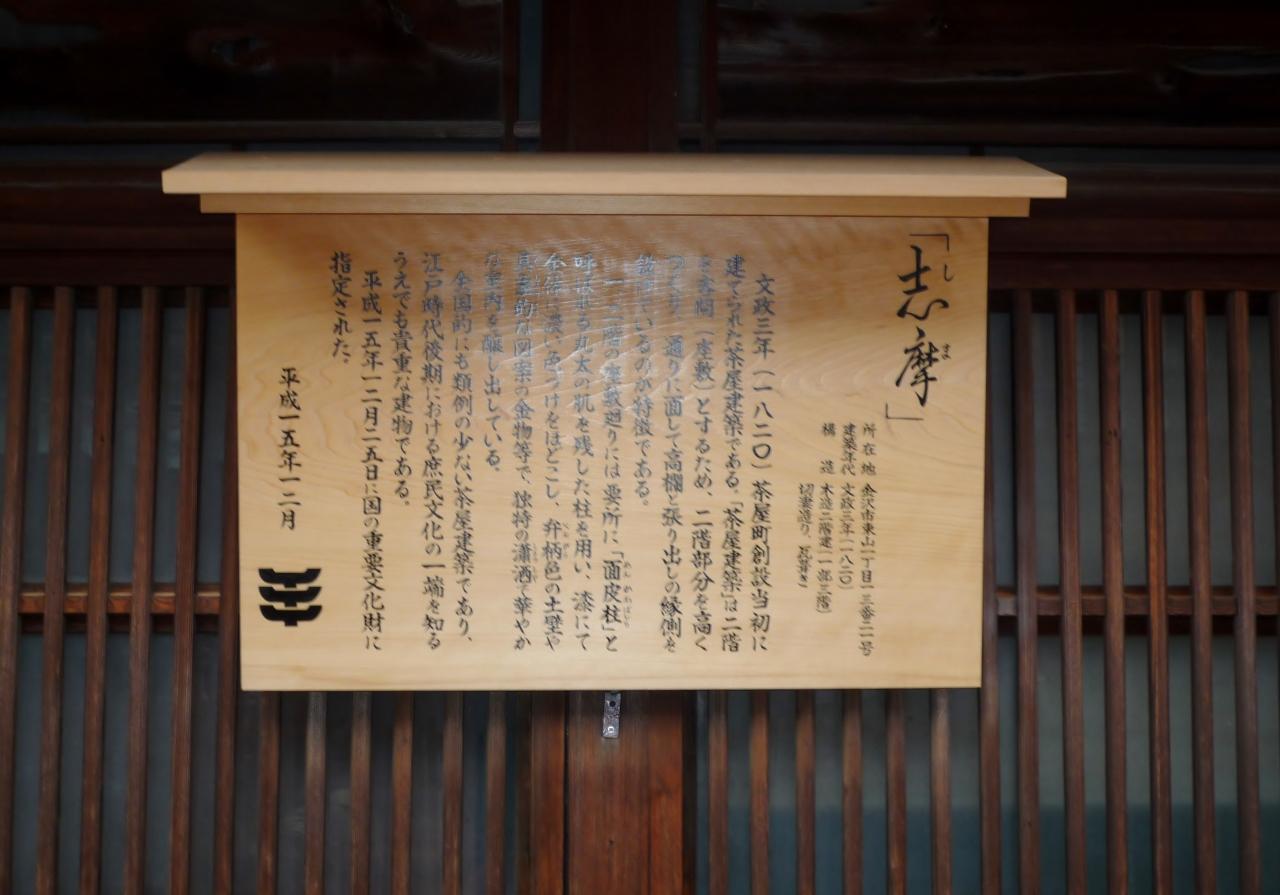 「志摩」
しま
所在地 金沢市東山一丁目一三番二一号
建築年代 文政三年(一八二〇)
構造 木造二階建(一部三階)
切妻造り、瓦葺き
文政三年(一八二〇)茶屋町創設当初に
建てられた茶屋建築である。「茶屋建築」は二階
を客間(座敷)とするため、二階部分を高く
つくり、通りに面して高欄と張り出しの縁側を
設けているのが特徴である。
二階の座敷廻りには要所に「面皮柱」と
めんかわばしら
呼ばれる丸太の肌を残した柱を用い、漆にて
全体に濃い色づけをほどこし、弁柄色の土壁や
べんがら
具象的な図案の金物等で、独特の瀟洒で華やか
しょうしゃ
な室内を醸し出している。
全国的にも類例の少ない茶屋建築であり、
江戸時代後期における庶民文化の一端を知る
うえでも貴重な建物である。
平成一五年一二月二五日に国の重要文化財に
指定された。
平成一五年一二月